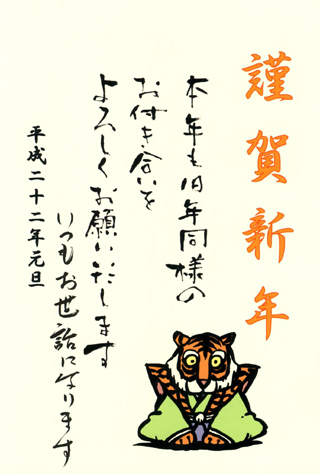 謹賀新年
本年も旧年同様の
お付き合いを
よろしくお願いいたします
平成二十二年元旦
いつもお世話になります